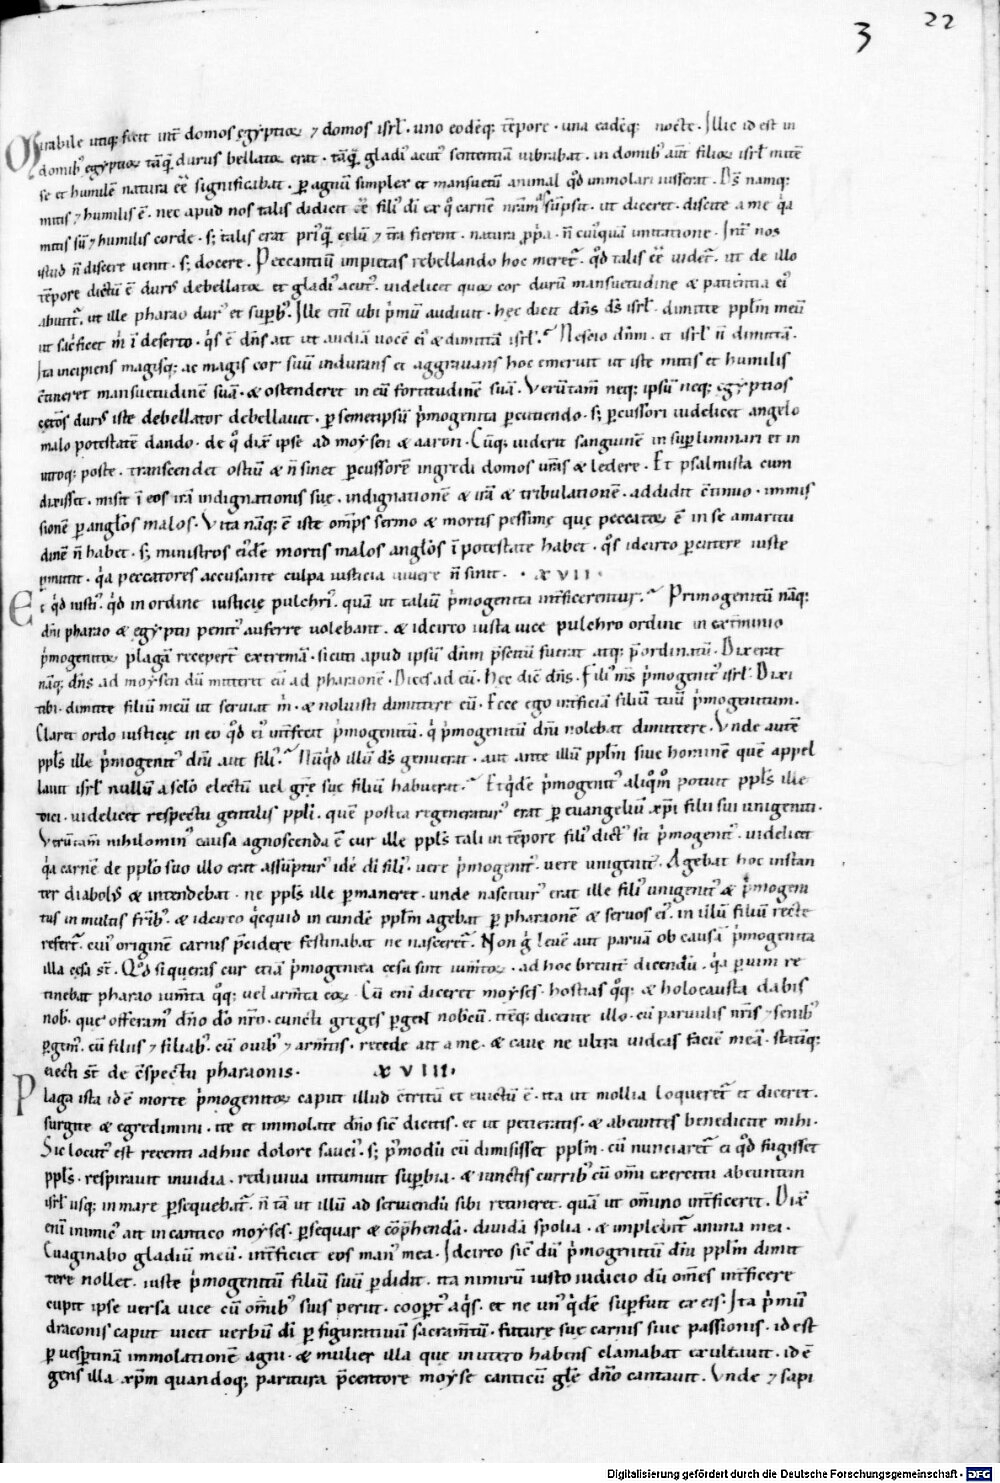 3 22
Mirabile utiq; fecit int̄ domos egyptioꝝ ⁊ domos isrl̄ . uno eodēq; tēpore . una eadēq; nocte . Illic id est in
domib; egyptioꝝ tāq̄ durus bellatoꝝ erat . tāq̄ gladi᷒ acut᷒ sententiā vibrabat . in domib᷒ aut̄ filioꝝ isrl̄ mitē
se et humilē natura eē̄ significabat . ꝑ agnū simplex et mansuetū animal qd̄ immolari iusserat . Ds̄ namq;
mitis ⁊ humilis ē . nec apud nos talis didicit eē̄ fili᷒ di ex qͦ carnē nr̄am sūpsit . ut diceret . discite a me q̇a
mitis sū ⁊ humilis corde . s; talis erat pri᷒q̄ celū ⁊ tr̄a fierent . natura ꝓp̄a . n̄ cuiquā imitatione . Int̄ nos
istud n̄ discere venit . s; docere . Peccantiū impietas rebellando hoc meret̄ . qd̄ talis eē̄ videt̄ . ut de illo
tēpore dictū ē dur᷒ debellatoꝝ et gladi᷒ acut᷒ . videlicet quoꝝ cor durū mansuetudine & patientia ei᷒
abutit̄ . ut ille pharao dur᷒ et supb᷒ . Ille eni ubi p̄mū audivit . hęc dicit dn̄s ds̄ isrl̄ . dimitte pplm̄ meū
ut sac̄ficet m̄ i deserto . q̇s ē dn̄s ait ut audiā vocē ei᷒ & dimittā isrl̄ . Nescio dnm̄ . et isrl̄ n̄ dimittā .
Ita incipiens magisq; ac magis cor suū indurans et aggravans hoc emeruit ut iste mitis et humilis
c̄tineret mansuetudinē suā . & ostenderet in eū fortitudinē suā . Verūtam̄ neq; ipsū neq; egyptios
cęt̄os duri᷒ iste debellator debellavit . ꝑ semetipsū p̄mogenita ꝑcutiendo . s; ꝑcussori videlicet angelo
malo potestatē dando . de qͦ dix̄ ipse ad moysen & aaron . Cūq; viderit sanguinē in supliminari et in
utroq; poste . transcendet ostiū & n̄ sinet ꝑcussorē ingredi domos vr̄as & ledere . Et psalmista cum
dixisset . misit i eos irā indignationis suę . indignationē & irā & tribulationē . addidit c̄tinuo . immis
sionē ꝑ angl̄os malos . Vita nāq; ē iste om̄ps sermo & mortis pessimę quę peccatoꝝ ē in se amaritu
dinē n̄ habet . s; ministros ei᷒dē mortis malos angl̄os i potestate habet . q̇s idcirco ꝑcutere iuste
ꝑmittit . q̇a peccatores accusante culpa iusticia vivere n̄ sinit . · XVII ·
Et qd̄ iusti᷒ . qd̄ in ordine iusticię pulchri᷒ . quā ut taliū p̄mogenita int̄ficerentur . Primogenitū nāq;
dn̄i pharao & egyptii penit᷒ auferre volebant . & idcirco iusta vice pulchro ordine in extiminio
p̄mogenitoꝝ plagā recepert̄ extremā . sicuti apud ipsū dnm̄ p̄scitū fuerat atq; p̄ordinatū . Dixerat
nāq; dn̄s ad moysen dū mitteret eū ad pharaonē . Dices ad eū . Hęc dic̄ dn̄s . Fili᷒ m̄s p̄mogenit᷒ isrl̄ . Dixi
tibi . dimitte filiū meū ut serviat m̄ . & noluisti dimittere eū . Ecce ego int̄ficiā filiū tuū p̄mogenitum .
Claret ordo iusticię in eo qd̄ ei᷒ int̄fecit p̄mogenitū . q̇ p̄mogenitū dn̄i nolebat dimittere . Unde autē
ppl̄s ille p̄mogenit᷒ dn̄i aut fili᷒ . Nūq̇d illū ds̄ genuerat . aut ante illū pplm̄ sive hominē quē appel
lavit isrl̄ nullū a sclo electū vel gr̄ę suę filiū habuerat . Et q̇dē p̄mogenit᷒ aliqͦmͦ potuit ppl̄s ille
dici . videlicet respectu gentilis ppl̄i . quē postea regeneratur᷒ erat ꝑ evangeliū xp̄i filii sui unigeniti .
Verūtam̄ nihilomin᷒ causa agnoscenda ē cur ille ppl̄s tali in tēpore fili᷒ dict᷒ sit p̄mogenit᷒ . videlicet
q̇a carnē de pplo suo illo erat assūptur᷒ idē di fili᷒ . vere p̄mogenit᷒ . vere unigenit᷒ . Agebat hoc instan
ter diabol᷒ & intendebat . ne ppl̄s ille ꝑmaneret . unde nascitur᷒ erat ille fili᷒ unigenit᷒ & p̄mogeni
tus in multis fr̄ib᷒ . & idcirco q̇cquid in eundē pplm̄ agebat ꝑ pharaonē & servos ei᷒ . in illū filiū recte
refert̄ . cui᷒ originē carnis p̄cidere festinabat ne nasceret̄ . Non g̊ levē aut parvā ob causā p̄mogenita
illa cęsa st̄ . Qd̄ si queras cur etiā p̄mogenita cęsa sint iumtoꝝ . ad hoc brevit̄ dicendū . q̇a ꝑ vim re
tinebat pharao iumta qͦq; vel armta eoꝝ . Cū eni diceret moyses . hostias qͦq; & holocausta dabis
nob᷒ . que offeram᷒ dn̄o dō nr̄o . cuncti greges ꝑgent nobiscū . itēq; dicente illo . cū parvulis nr̄is ⁊ senib᷒
ꝑgem᷒ . cū filiis ⁊ filiab᷒ . cū ovib᷒ ⁊ armtis . recede ait a me . & cave ne ultra videas faciē meā . statīq;
eiecti st̄ de c̄spectu pharaonis . XVIII .
Plaga ista id ē morte p̄mogenitoꝝ caput illud c̄tritū et evictū ē . ita ut mollia loqueret̄ et diceret .
surgite & egredimini . ite et immolate dn̄o sic̄ dicitis . et ut petieratis . & abeuntes benedicite mihi .
Sic locut᷒ est recenti adhuc dolore sauci᷒ . s; p̄modū cū dimisisset pplm̄ . cū nunciaret̄ ei qd̄ fugisset
ppl̄s . respiravit invidia . rediviva intumuit supbia . & iunctis currib᷒ cū om̄i exercitu abeuntem
isrl̄ usq; in mare ꝑsequebat̄ . n̄ tā ut illū ad serviendū sibi retineret . quā ut om̄ino int̄ficeret . Dix̄
eni inimic᷒ ait in cantico moyses . ꝑsequar & cōp̄hendā . dividā spolia . & implebit̄ anima mea .
Evaginabo gladiū meū . int̄ficiet eos man᷒ mea . Idcirco sic̄ dū p̄mogenitū dn̄i pplm̄ dimit
tere nollet . iuste p̄mogenitū filiū suū ꝑdidit . ita nimirū iusto iudicio dū om̄es int̄ficere
cupit ipse versa vice cū om̄ib᷒ suis periit . coopt᷒ aq̇s . et ne un᷒ q̇dē supfuit ex eis . Ita p̄mū
draconis caput vicit verbū di ꝑ figurativū sacramtū . future suę carnis sive passionis . id est
ꝑ vesptinā immolationē agni . & mulier illa que in utero habens clamabat exultavit . id ē
gens illa xpm̄ quandoq; paritura p̄centore moyse canticū glē dn̄o cantavit . Unde ⁊ sapi
Digitalisierung gefördert durch die Deutsche Forschungsgemeinschaft - DFG